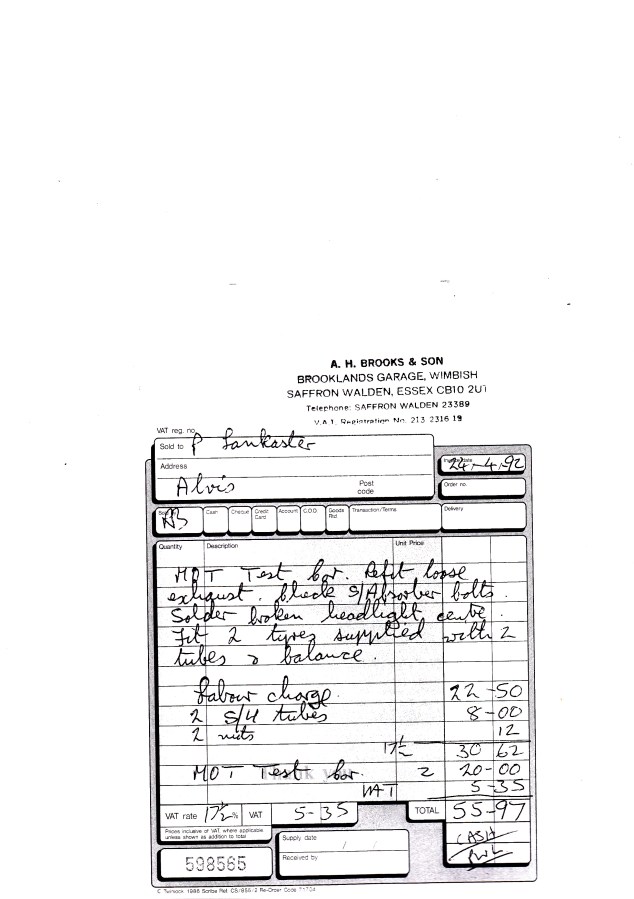 A. H. BROOKS & SON
BROOKLANDS GARAGE, WIMBISH
SAFFRON WALDEN, ESSEX CB10 2U
Telephone: SAFFRON WALDEN 23389
V.A.T. Registration No. 213 2316 19
VAT reg. no.
Sold to P Lankaster
Address
Alvis
Post code
Invoice date 24-4-92
Order no.
Cash Cheque Credit Card Account C.O.D. Goods Rtd Transaction/Terms Delivery
Quantity Description Unit Price
MOT Test car. Refit loose
exhaust. check S/Absorber bolts.
Solder broken headlight centre.
Fit 2 tyres supplied with 2
tubes & balance.
Labour charge. 22-50
2 S/H tubes 8-00
2 nuts 12
17½ 30 62
MOT Test car. 20-00
VAT 5-35
VAT rate 17½% VAT 5-35 TOTAL 55-97
Prices inclusive of VAT where applicable
unless shown as addition to total
Supply date / /
CASH
598565
Received by
© Twinlock 1986 Scribe Ref. CS/855/2 Re-Order Code 71704